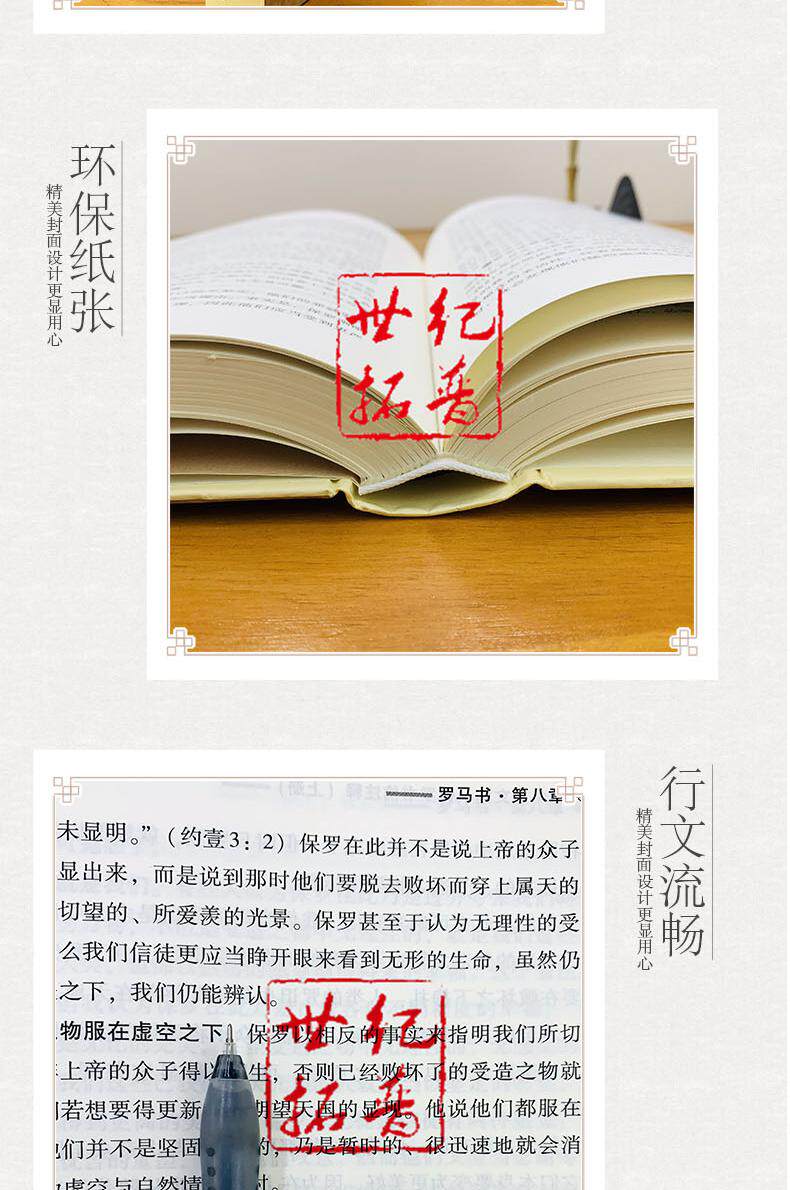 环保纸张
精美封面设计更显用心
世纪
拓普
行文流畅
精美封面设计更显用心
罗马书·第八章
未显明。”(约壹3：2)保罗在此并不是说上帝的众子
显出来，而是说到那时他们要脱去败坏而穿上属天的
切望的、所爱羡的光景。保罗甚至于认为无理性的受
么我们信徒更应当睁开眼来看到无形的生命，虽然仍
之下，我们仍能辨认。
物服在虚空之下 保罗以相反的事实来指明我们所切
上帝的众子得以 生，否则已经败坏了的受造之物就
若想要得更新 期望天国的显现。他说他们都服在
们并不是坚固 的，乃是暂时的、很迅速地就会消
虚空与自然情
世纪
拓普